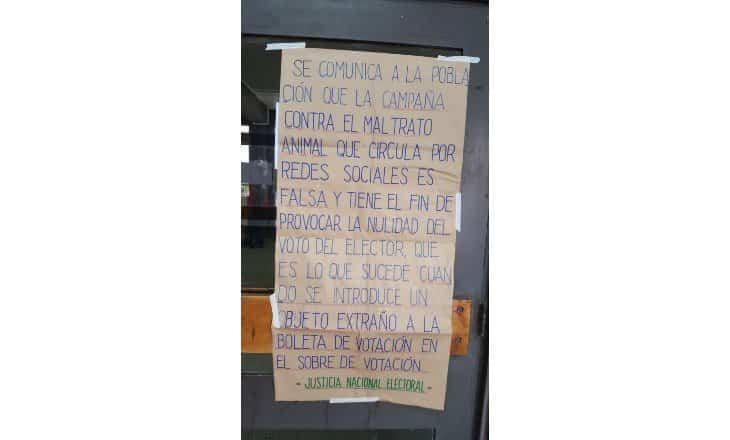 SE COMUNICA A LA POBLA
CIÓN QUE LA CAMPAÑA
CONTRA EL MALTRATO
ANIMAL QUE CIRCULA POR
REDES SOCIALES ES
FALSA Y TIENE EL FIN DE
PROVOCAR LA NULIDAD DEL
VOTO DEL ELECTOR, QUE
ES LO QUE SUCEDE CUAN
DO SE INTRODUCE UN
OBJETO EXTRAÑO A LA
BOLETA DE VOTACIÓN EN
EL SOBRE DE VOTACIÓN.
- JUSTICIA NACIONAL ELECTORAL -